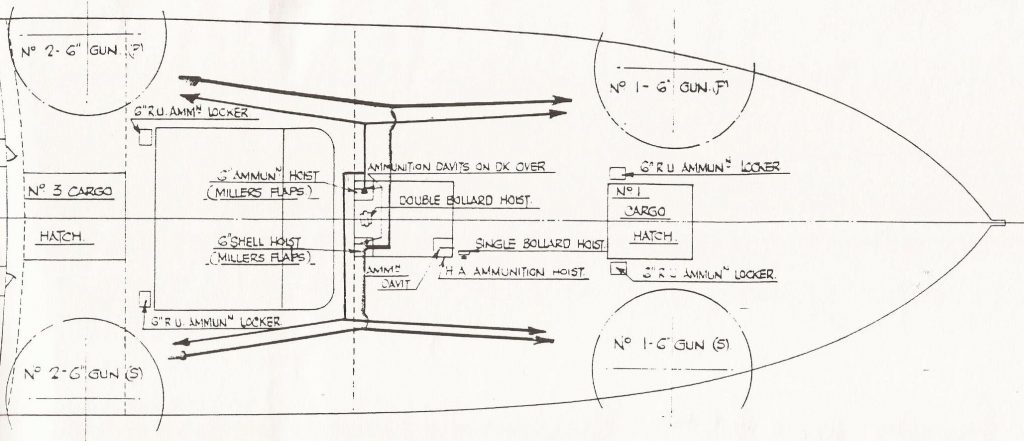 Nº 2-6" GUN.(P)
Nº 1-6" GUN.(P)
6" R.U. AMMᴺ LOCKER
6" R.U AMMUNᴺ LOCKER
AMMUNITION DAVITS ON DK OVER
6" AMMUNᴺ HOIST
(MILLERS FLAPS.)
Nº 3 CARGO
HATCH.
Nº 1
CARGO
HATCH.
DOUBLE BOLLARD HOIST.
6" SHELL HOIST
(MILLERS FLAPS.)
SINGLE BOLLARD HOIST.
AMMᴺ
DAVIT
H.A. AMMUNITION HOIST.
3" R.U AMMUNᴺ LOCKER.
6" R.U. AMMUNᴺ LOCKER
Nº 2-6" GUN (S)
Nº 1-6" GUN (S)